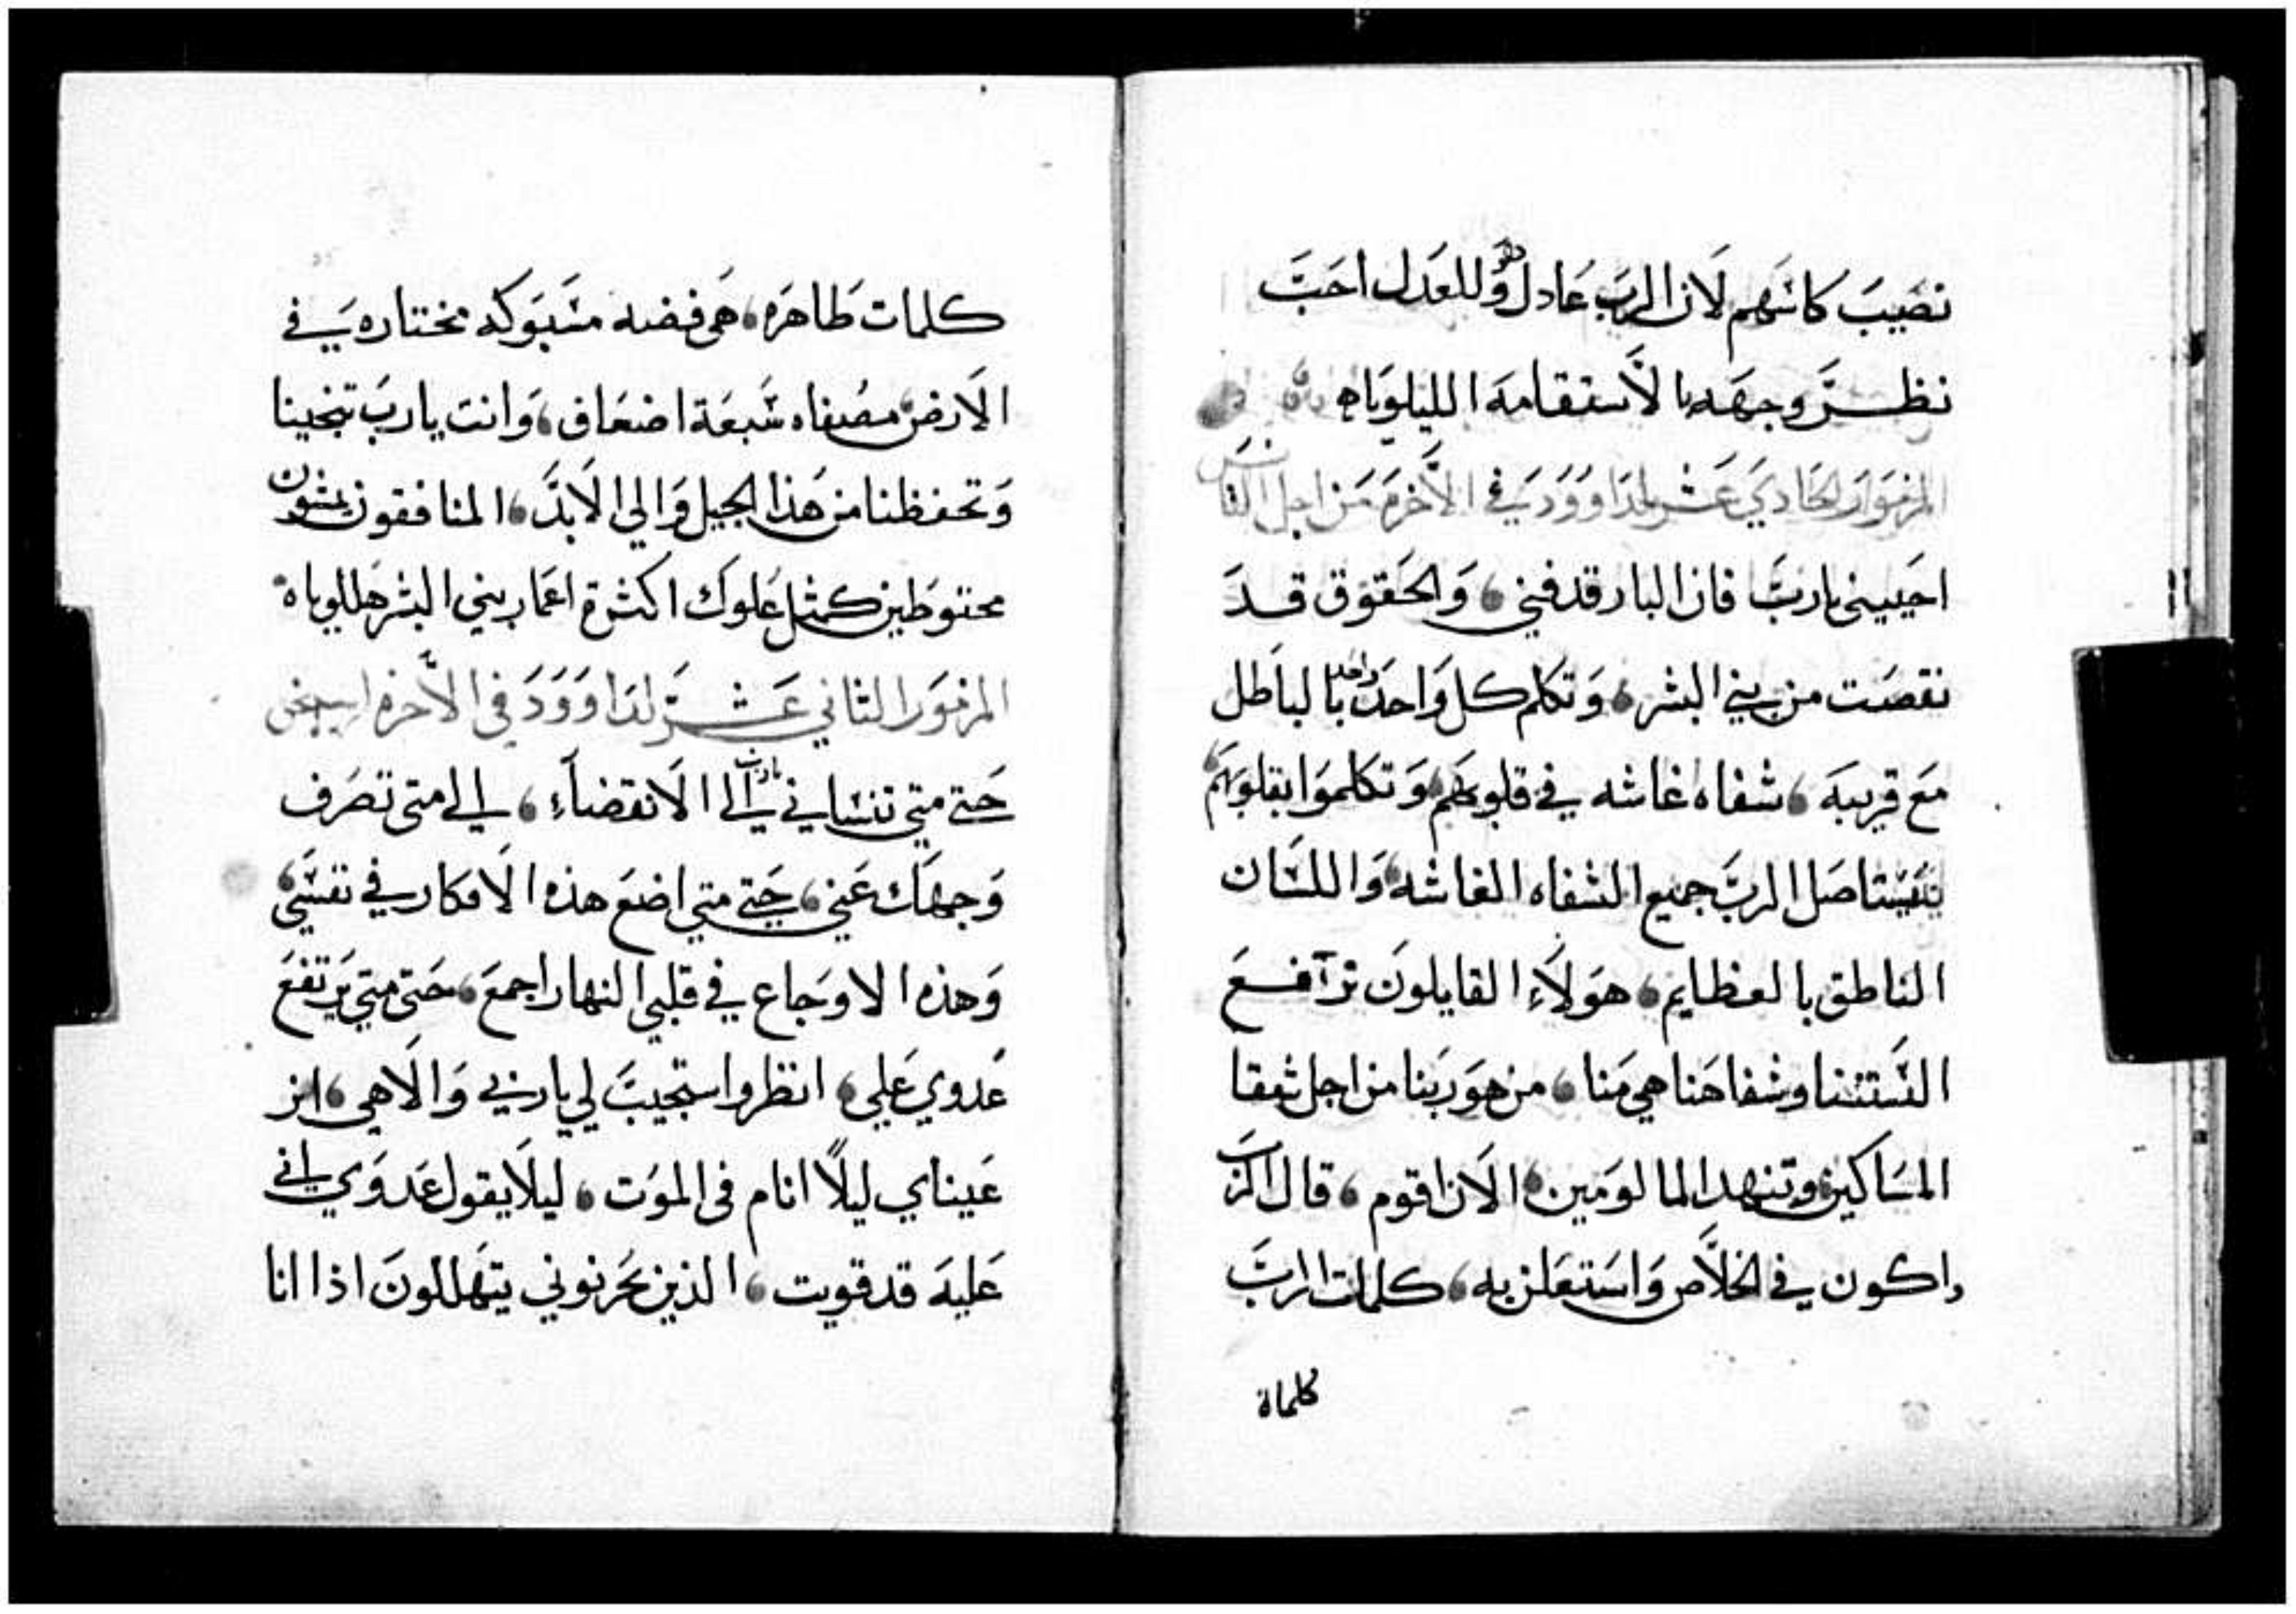 نصَيبَ كاسَهم لَان الربَ عَادل وهو للعَدل احَبَّ
نظرَ وجهَه بالَاستقامه الليلوياه
المزمَوَر الحَادي عَشر لدَاوَودَ في الَاخرَه مَن اجل الثامن
احَييني يارَبَّ فان البار قد فني، وَالحَقوق قدَ
نقصَت من بني البشر، وَتكلم كل وَاحدَ واحد بالباَطل
مَع قريبَه، شفاه غاشه في قلوبهَم، وَتكلموَا بقلوبهَم
يَستاصَل الربَّ جميع الشفاه الغاشه، وَاللسَان
الناطق بالعظايم، هوَلَاءِ القايلونَ نرآفعَ
السَنتنا وشفاهَنا هي مَنا، من هوَ ربَنا من اجل شقا
المسَاكين، وتنهد المالومَين، الَان اقوم، قال الرَبَ
واكون في الخلَاص وَاسَتعَلن به، كلمات الرَبَّ
كلماة
كلمات طَاهرَه، هَي فضه مسَبوَكه مختاره يَفي
الَارض، مصُفاه سَبعَة اضعَاف، وَانت ياربَ تنجينا
وَتحفظنا من هَذا الجيل وَالي الَابدَ، المنافقون يمشون
محتوطَين كمثل عَلوك اكثرة اعمَار بني البشر هَللوياه
المزموَر الثاني عَشرَ لدَاوَوَدَ في الَاخره
حَتي متي تنسَاني يارب الي الَانقضاَءِ، الي متي تصَرف
وَجهَك عَني، حَتي متي اضعَ هذه الَافكار في نفسَي،
وَهذه الاوجَاع في قلبي النهار اجمعَ، حَتي متي يَرتفعَ
عَدوي عَلي، انظر واستجيبَ لي ياربي وَالَاهي، انر
عَيناي ليلًا انام في الموَت، ليلَا يقول عَدوَي اني
عَليهَ قد قويت، الذين يحَزنوني يتهَللونَ اذا انا